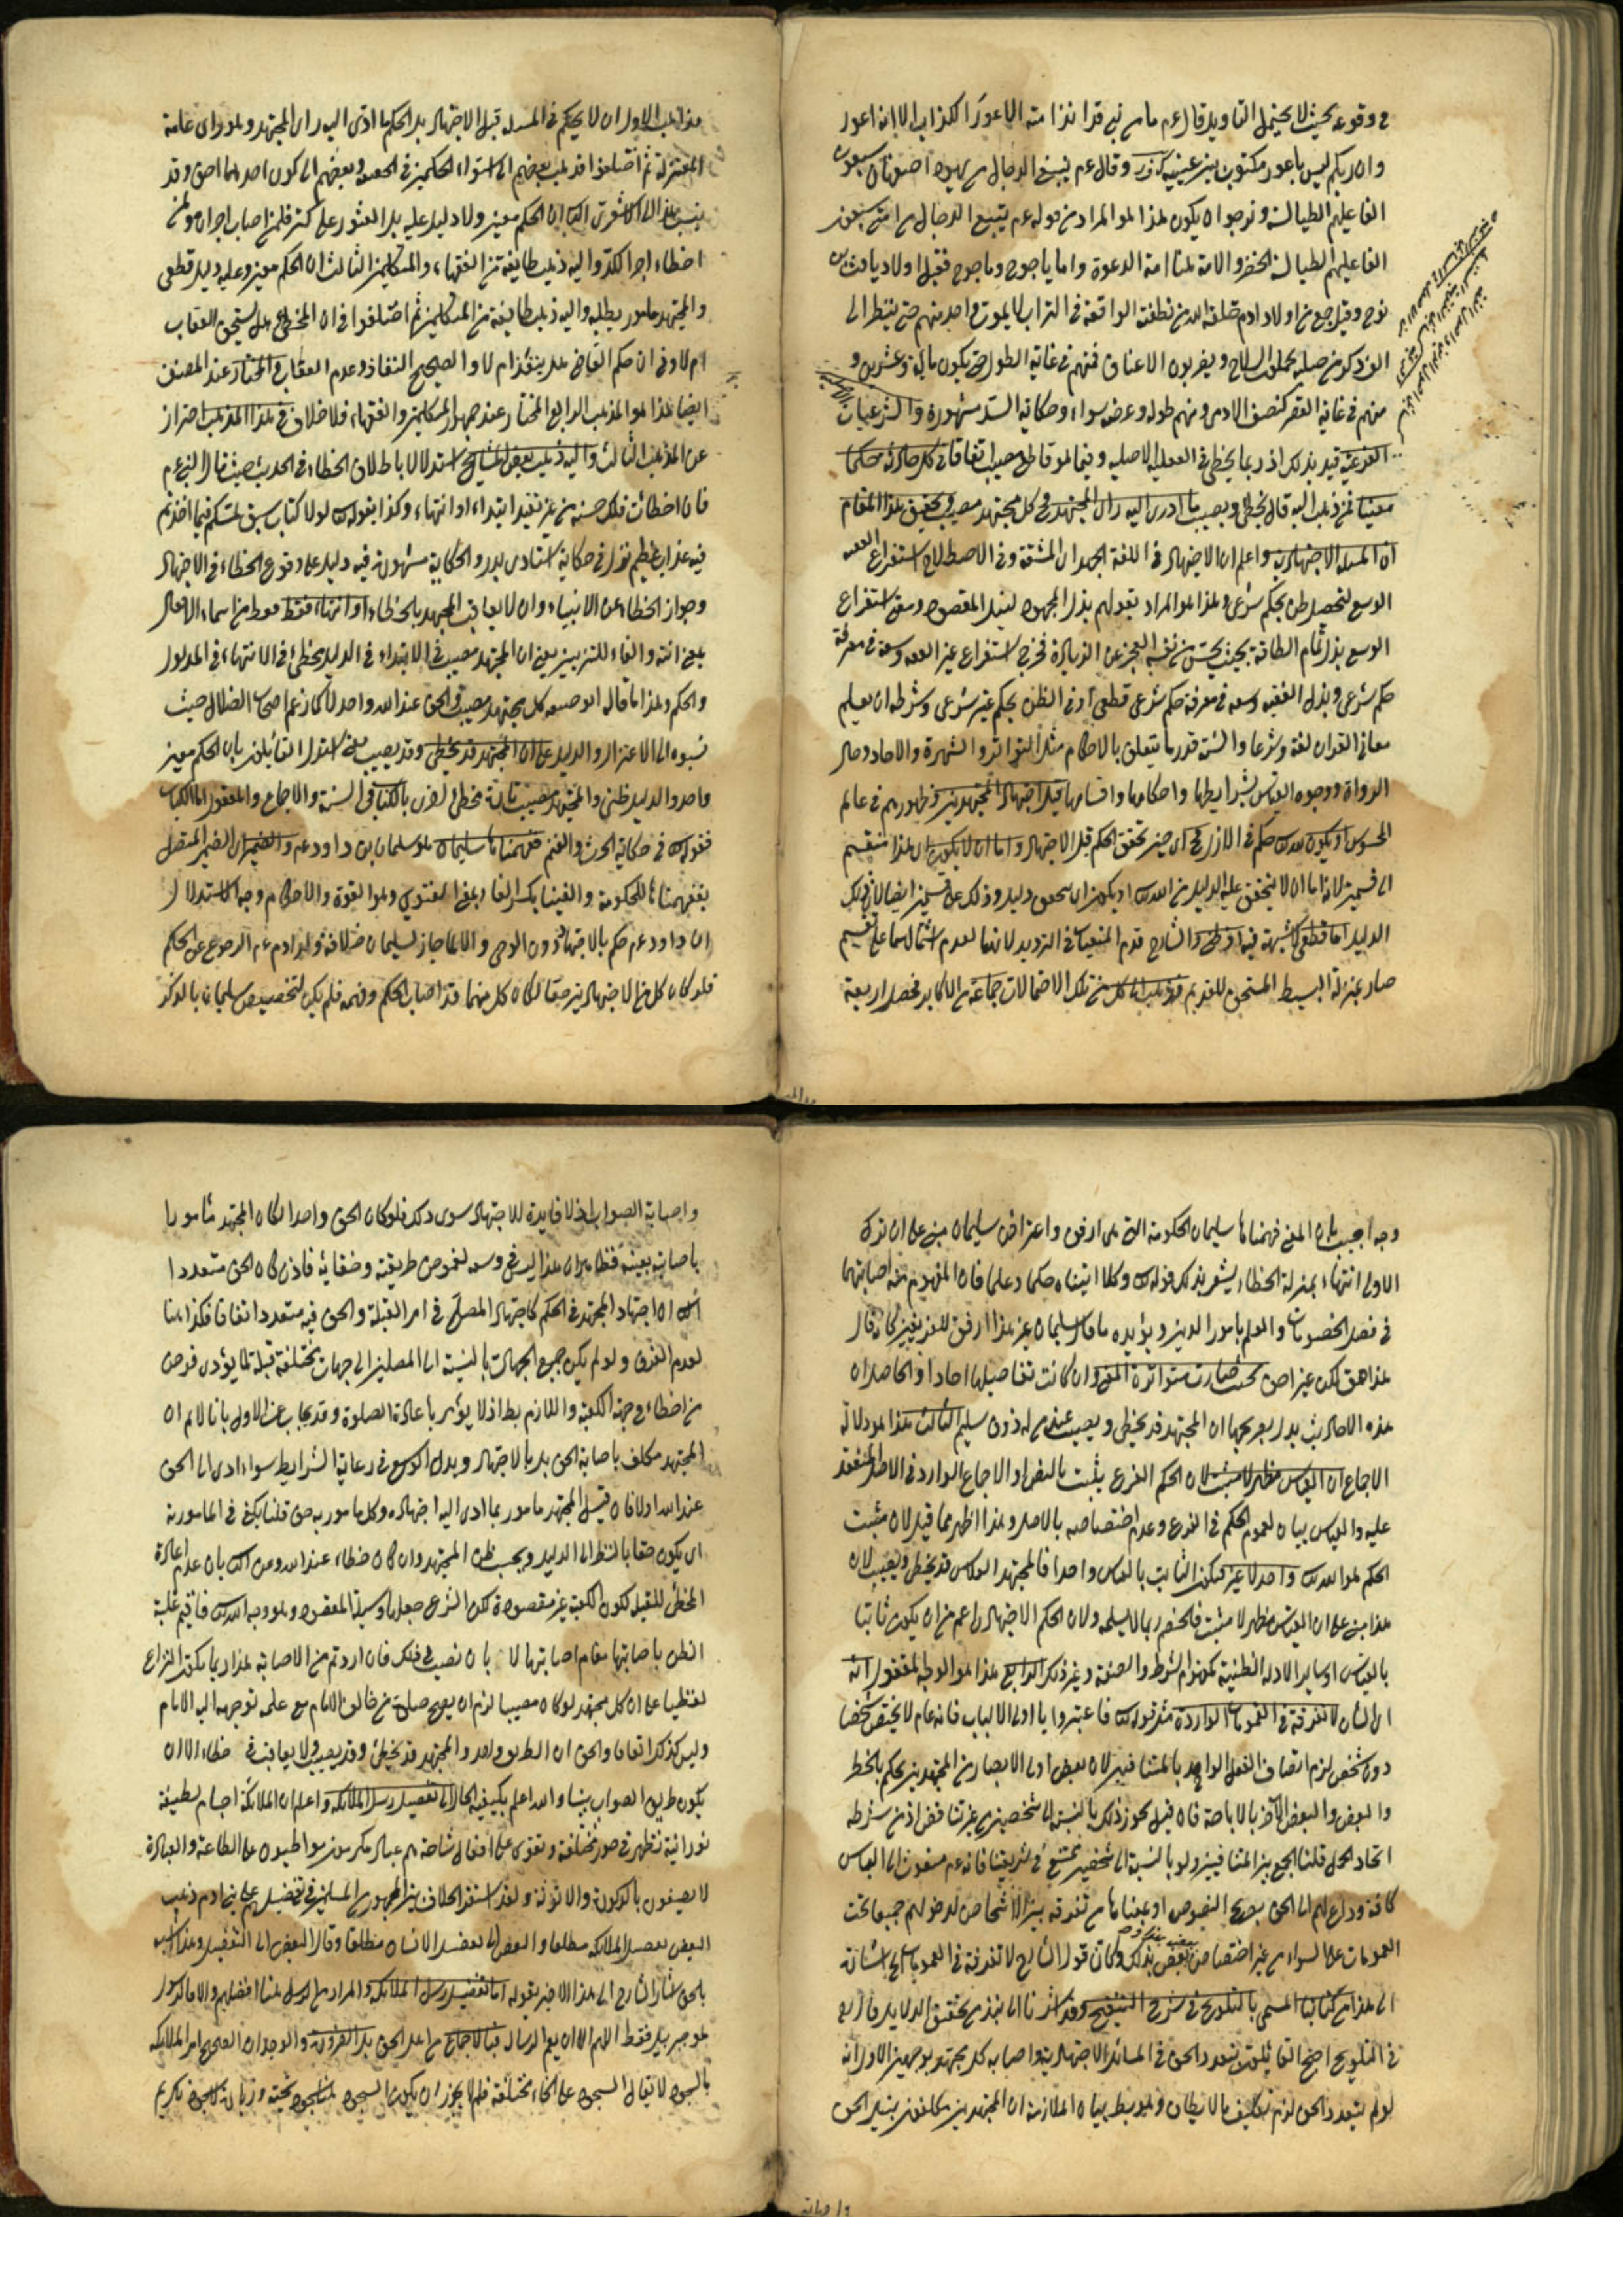 في وقوعه بحيث لا يحتمل التاويل قال عم ما من نبي قد انذر امته الاعور الكذاب الا انه اعور
وان ربكم ليس باعور مكتوب بين عينيه ك ف ر وقال عم يتبع الدجال من يهود اصفهان سبعون
الفا عليهم الطيالسة ونرجوا ان يكون هذا هو المراد من قوله عم يتبع الدجال من امتي سبعون
الفا عليهم الطيالسة الخضر والامة هنا امة الدعوة واما ياجوج وماجوج فقيل اولاد يافث بن
نوح وقيل جمع من اولاد ادم خلقه الله من نطفته الواقعة في التراب لا يموت واحد منهم حتى ينظر الى
الف ذكر من صلبه يحملون السلاح ويضربون الاعناق فمنهم في غاية الطول حتى يكون مائة وعشرين و
منهم في غاية القصر كنصف الادمي ومنهم طوله وعرضه سواء وحكاية السد مشهورة والشرعيات
الفرعية قيد بذلك اذ ربما يخطئ في العقلية الاصلية وفيما هو قاطع مصيب اتفاقا في كل حادثة حكما
معينا فمن ذهب اليه قال يخطئ ويصيب ما ادى اليه راى المجتهد في كل مجتهد مصيب وتحقيق هذا المقام
ان المسئلة الاجتهادية واعلم ان الاجتهاد في اللغة الجهد اى المشقة وفي الاصطلاح استفراغ الفقيه
الوسع لتحصيل ظن بحكم شرعي وهذا هو المراد بقولهم بذل المجهود لنيل المقصود ومعنى استفراغ
الوسع بذل تمام الطاقة بحيث يحس من نفسه العجز عن الزيادة فخرج استفراغ غير الفقيه وسعه في معرفة
حكم شرعي وبذل الفقيه وسعه في معرفة حكم شرعي قطعي او في الظن بحكم غير شرعي وشرطه ان يعلم
معاني القران لغة وشرعا والسنة قدر ما يتعلق بالاحكام مثل التواتر والشهرة والاحاد وحال
الرواة ووجوه القياس بشرايطها واحكامها واقسامها قبل اجتهاد المجتهدين في ظهورهم في عالم
المحسوس او يكون لله حكم في الازل في اى حين تحقق الحكم قبل الاجتهاد واما ان لا يكون اى هذا منقسم
الى قسمين لانه اما ان لا يتحقق عليه الدليل من الله او يكون اى يتحقق دليل وذلك على قسمين ايضا لان ذلك
الدليل اما قطعي لا شبهة فيه او ظني والشارح قدم المنفيات في الترديد لانها لعدم اشتمالهما على تقسيم
صار بمنزلة البسيط المستحق للتقديم فذهب الى كل من تلك الاحتمالات جماعة من الاكابر فحصل اربعة
مذاهب الاول ان لا حكم في المسئلة قبل الاجتهاد بل الحكم ما ادى اليه راى المجتهد وهو راى عامة
المعتزلة ثم اختلفوا فذهب بعضهم الى استواء الحكمين في الحقية وبعضهم الى كون احدهما احق وقد
ينسب هذا الى الاشعري الثاني ان الحكم معين ولا دليل عليه بل العثور على كنز فلمن اصاب اجران ولمن
اخطاء اجر الكد واليه ذهب طائفة من الفقهاء والمتكلمين الثالث ان الحكم معين وعليه دليل قطعي
والمجتهد مامور بطلبه واليه ذهب طائفة من المتكلمين ثم اختلفوا في ان المخطئ هل يستحق العقاب
ام لا وفي ان حكم القاضي هل ينقذ ام لا والصحيح النفاذ وعدم العقاب والمختار عند المصنف
ايضا هذا هو المذهب الرابع المختار عند جمهور المتكلمين والفقهاء فلا خلاف في هذا المذهب احتراز
عن المذهب الثالث واليه ذهب بعض المشايخ استدلالا باطلاق الخطاء في الحديث حيث قال النبي عم
فان اخطأت فلك حسنة من غير تقييد ابتداء او انتهاء وكذا بقوله لولا كتاب سبق لمسكم فيما اخذتم
فيه عذاب عظيم نزل في حكاية اسارى بدر والحكاية مشهورة فيه دليل على وقوع الخطاء في الاجتهاد
وجواز الخطاء عن الانبياء وان لا يعاقب المجتهد بالخطاء او انتهاء فقط فقط من اسماء الافعال
بمعنى انته والفاء للتزيين يعني ان المجتهد مصيب في الابتداء في الدليل مخطئ في الانتهاء في المدلول
والحكم وهذا ما قاله ابو حنيفة كل مجتهد مصيب والحق عند الله واحد لا كما زعم اصحاب الضلال حيث
نسبوه الى الاعتزال والدليل على ان المجتهد قد يخطئ وقد يصيب يعني استدل القائلون بان الحكم معين
واحد والدليل ظني والمجتهد مصيب تارة مخطئ اخرى بالكتاب والسنة والاجماع والمعقول اما الكتاب
فقوله في حكاية الحرث والغنم ففهمناها سليمان هو سليمان بن داود عم والضمير اى الضمير المتصل
بففهمناها للحكومة والفتيا بكسر الفاء بمعنى الفتوي وهو القوة والاحكام وجه الاستدلال
ان داود عم حكم بالاجتهاد دون الوحي والا لما جاز لسليمان خلافه ولداود عم الرجوع عن الحكم
فلو كان كل من الاجتهادين حقا لكان كل منهما قد اصاب الحكم وفهمه فلم يكن لتخصيص سليمان بالذكر
وجه اجيب بان المعنى ففهمناها سليمان الحكومة التي هي ارفق واعتراض سليمان مبني على ان ترك
الاولى انتهاء بمنزلة الخطاء يشعر بذلك قوله وكلا اتيناه حكما وعلما فان المفهوم منه اصابتهما
في فصل الخصومات والعلم بامور الدين ويؤيده ما قال سليمان غير هذا ارفق للفريقين كانه قال
هذا حق لكن غيره احق بحيث صارت متواترة المعنى وان كانت تفاصيلها احادا والحاصل ان
هذه الاحاديث يدل بصريحها ان المجتهد قد يخطئ ويصيب عند من له ذوق سليم الثالث هذا هو دلالة
الاجماع ان القياس مظهر لا مثبت لان الحكم الفرع يثبت بالنص او الاجماع الوارد في الاصل المنعقد
عليه والقياس بيان لعموم الحكم في الفرع وعدم اختصاصه بالاصل وهذا اظهر مما قيل لان مثبت
الحكم هو الله واحد لا غير فيكون الثابت بالقياس واحدا فالمجتهد القياس قد يخطئ ويصيب لان
هذا مبني على ان القياس مظهر لا مثبت فالخصم ربما لا يسلمه ولان الحكم الاجتهادي اعم من ان يكون ثابتا
بالقياس او بساير الادلة الظنية كمفهوم الشرط والصفة وغير ذلك الرابع هذا هو الوجه المعقول انه
اى الشان لا تفرقة في العمومات الواردة مثل قوله فاعتبروا يا اولى الالباب فانه عام لا يختص شخصا
دون شخص لزم اتصاف الفعل الواحد بالمتنافيين لان بعض اولى الابصار من المجتهدين يحكم بالخطر
والبعض والبعض الآخر بالاباحة فان قيل يجوز ذلك بالنسبة الى شخصين من غير تناقض اذ من شرطه
اتحاد المحل قلنا الجمع بين المتنافيين ولو بالنسبة الى شخصين ممتنع في شريعتنا فانه عم مبعوث الى الناس
كافة وداع لهم الى الحق بصريح النصوص او بمعناها من تفرقة بين الاشخاص لدخولهم جميعا تحت
العمومات على السواء من غير اختصاص بعض بذلك وكان قول الشارح لا تفرقة في العمومات الخ اشارة
الى هذا من كتابنا المسمى بالتلويح في شرح التنقيح وقد اشرنا الى نبذ من تحقيق الدلايل قال
في التلويح احتج القائلون بتعدد الحق في المسائل الاجتهادية واصابة كل مجتهد بوجهين الاول انه
لو لم يتعدد الحق لزم تكليف ما لا يطاق وهو بط بيان الملازمة ان المجتهدين مكلفون بنيل الحق
واصابة الصواب اذ لا فايدة للاجتهاد سوى ذلك فلو كان الحق واحدا لكان المجتهد مأمورا
باصابته بعينه فظاهر ان هذا ليس في وسعه لغموض طريقته وخفائه فاذن كان الحق متعددا
الثاني ان اجتهاد المجتهد في الحكم كاجتهاد المصلي في امر القبلة والحق فيه متعدد اتفاقا فكذا هنا
لعدم الفرق ولو لم يكن جميع الجهات بالنسبة الى المصلين الى جهات مختلفة قبلة لما يؤدى فرض
من اخطاء جهة الكعبة واللازم بط اذ لا يؤمر باعادة الصلوة وقد يجاب عن الاول بانا لا نم ان
المجتهد مكلف باصابة الحق بل بالاجتهاد وبذل الوسع في رعاية الشرايط سواء ادى الى الحق
عند الله اولا فان قيل المجتهد مامور بما ادى اليه اجتهاده وكل مامور به حق قلنا يكفي في المامورية
ان يكون حقا بالنظر الى الدليل وبحسب ظن المجتهد وان كان خطاء عند الله وعن الثاني بان عدم اعادة
المخطئ للقبلة لكون الكعبة غير مقصودة لكن الشرع جعلها وسيلة المقصود وهو وجه الله فاقيم غلبة
الظن باصابتها مقام اصابتها لا بان نصيب في فلك فان اردتم من الاصابة هذا ربما يكون النزاع
لفظيا على ان كل مجتهد لو كان مصيبا لزم ان يصح صلوة من خالف الامام مع علمه توجهه اليه الامام
وليس كذلك اتفاقا والحق ان الطريق واحد والمجتهد قد يخطئ وقد يصيب ولا يعاقب في خطاء الا ان
يكون طريق الصواب بينا والله اعلم بكيفية الحال الى تفضيل رسل الملائكة واعلم ان الملائكة اجسام لطيفة
نورانية تظهر في صور مختلفة وتقوى على افعال شاقة هم عباد مكرمون مواظبون على الطاعة والعبادة
لا يوصفون بالذكورة والانوثة ولقد استقر الخلاف بين الجمهور من المسلمين في تفضيلهم على بني ادم ذهب
البعض تفضيل الملائكة مطلقا والبعض الى تفضيل الانسان مطلقا وقال البعض الى التفصيل وهذا ليس
بالحق اشار الشارح الى هذا الاخير بقوله اما تفضيل رسل الملائكة والمراد من الرسل هنا افضلهم والا فالرسول
هو جبريل فقط اللهم الا ان يعم الرسالة فبالاجماع من اهل الحق بل بالضرورة والوجدان الصحيح امر الملائكة
بالسجود لا يقال السجود على انحاء مختلفة فلم لا يجوز ان يكون السجود هنا سجود تحية وزيارة لا سجود تكريم